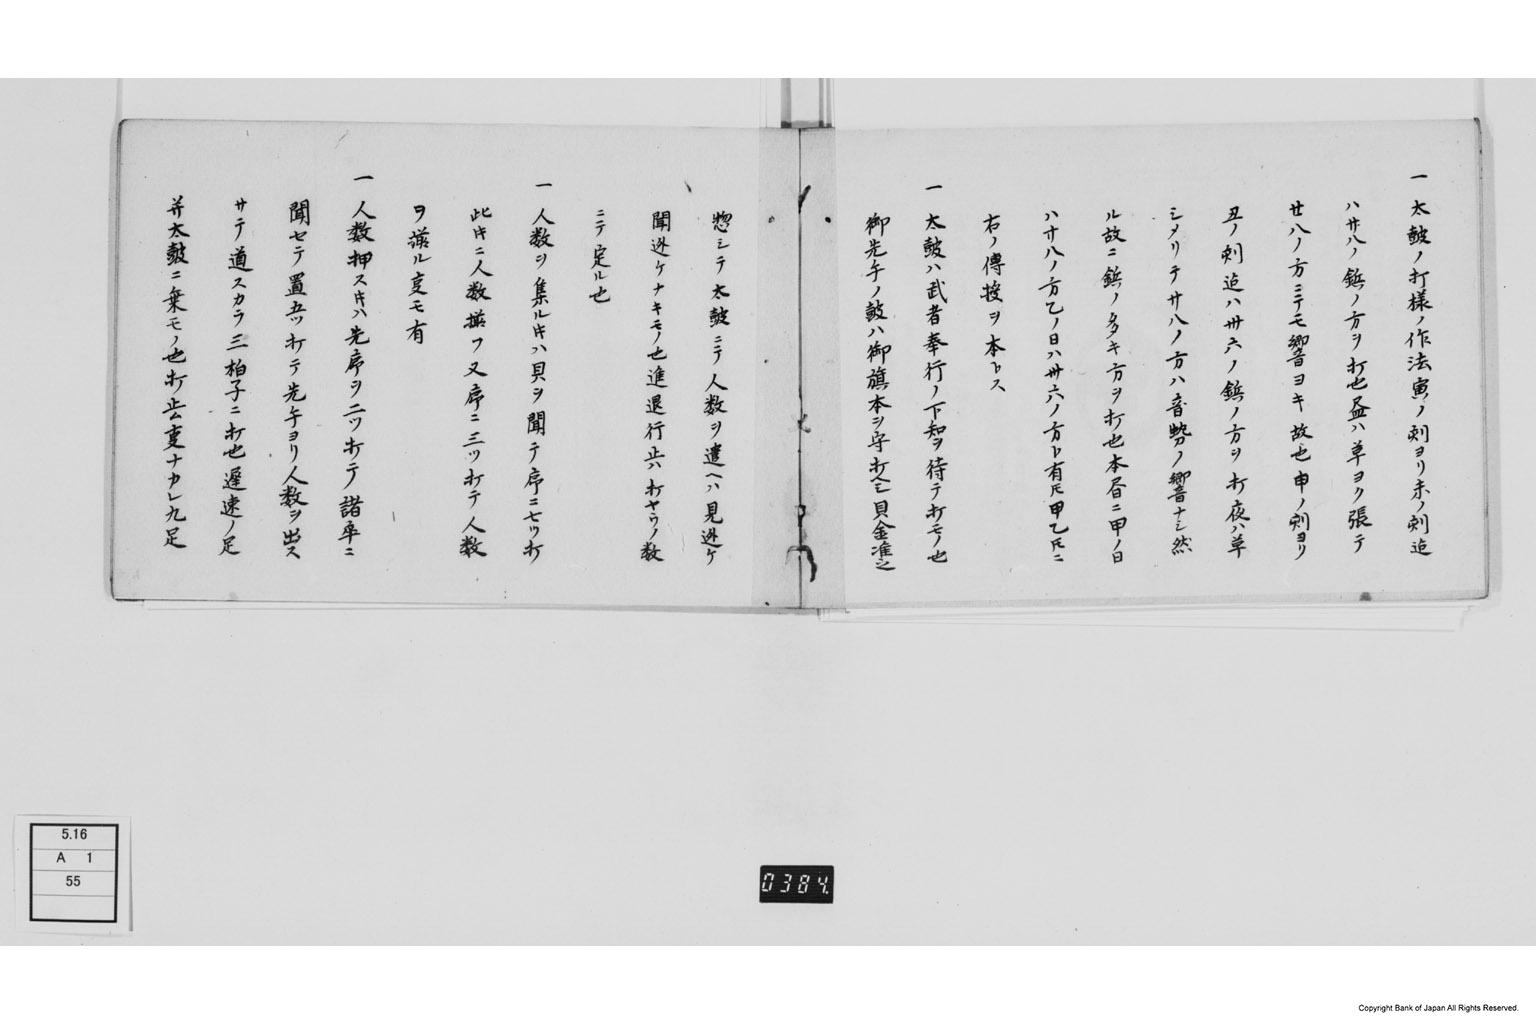 一 太鼓ノ打様ノ作法寅ノ刻ヨリ未ノ刻迠
ハ廿八ノ鋲ノ方ヲ打也昼ハ草ヨク張テ
廿八ノ方ニテモ響ヨキ故也申ノ刻ヨリ
丑ノ刻迠ハ卅六ノ鋲ノ方ヲ打夜ハ草
シメリテ廿八ノ方ハ音勢ノ響ナシ然
ル故ニ鋲ノ多キ方ヲ打也本昼ニ甲ノ日
ハ廿八ノ方乙ノ日ハ卅六ノ方ト有𪜈甲乙𪜈ニ
右ノ傳授ヲ本トス
一 太鼓ハ武者奉行ノ下知ヲ待テ打モノ也
御先手ノ鼓ハ御旗本ヲ守打ヘシ貝金准之
惣シテ太鼓ニテ人数ヲ遣ヘハ見迯ケ
聞迯ケナキモノ也進退行止ハ打ヤウノ数
ニテ定ル也
一 人数ヲ集ルキハ貝ヲ聞テ序ニ七ツ打
此キニ人数揃フ又序ニ三ツ打テ人数
ヲ揃ル叓モ有
一 人数押スキハ先序ヲ二ツ打テ諸卒ニ
聞セテ置五ツ打テ先手ヨリ人数ヲ出ス
サテ道スカラ三拍子ニ打也遅速ノ足
并太鼓ニ乗モノ也打止ム叓ナカレ九足
5.16
A 1
55
0384
Copyright Bank of Japan All Rights Reserved.